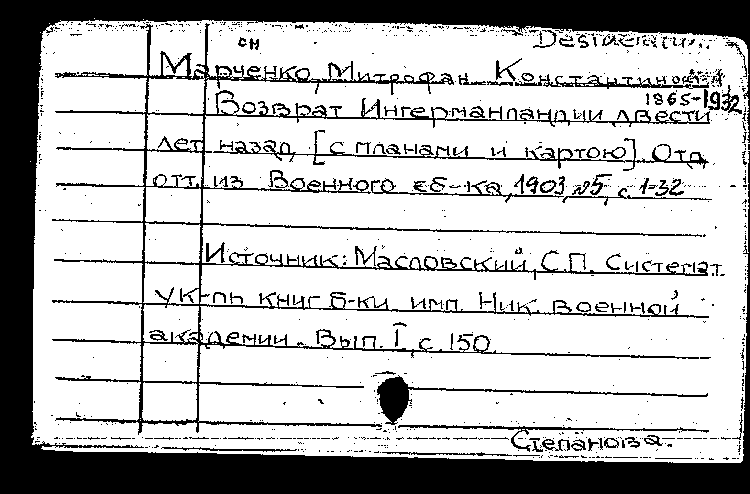 Desiderata
сн
Марченко, Митрофан Константинович
1865-1932
Возврат Ингерманландии двести
лет назад, [с планами и картою]. Отд.
отт. из Военного сб-ка, 1903, №5, с. 1-32
Источник: Масловский, С.П. Системат.
ук-ль книг б-ки имп. Ник. военной
академии. Вып. I, с. 150.
Степанова.